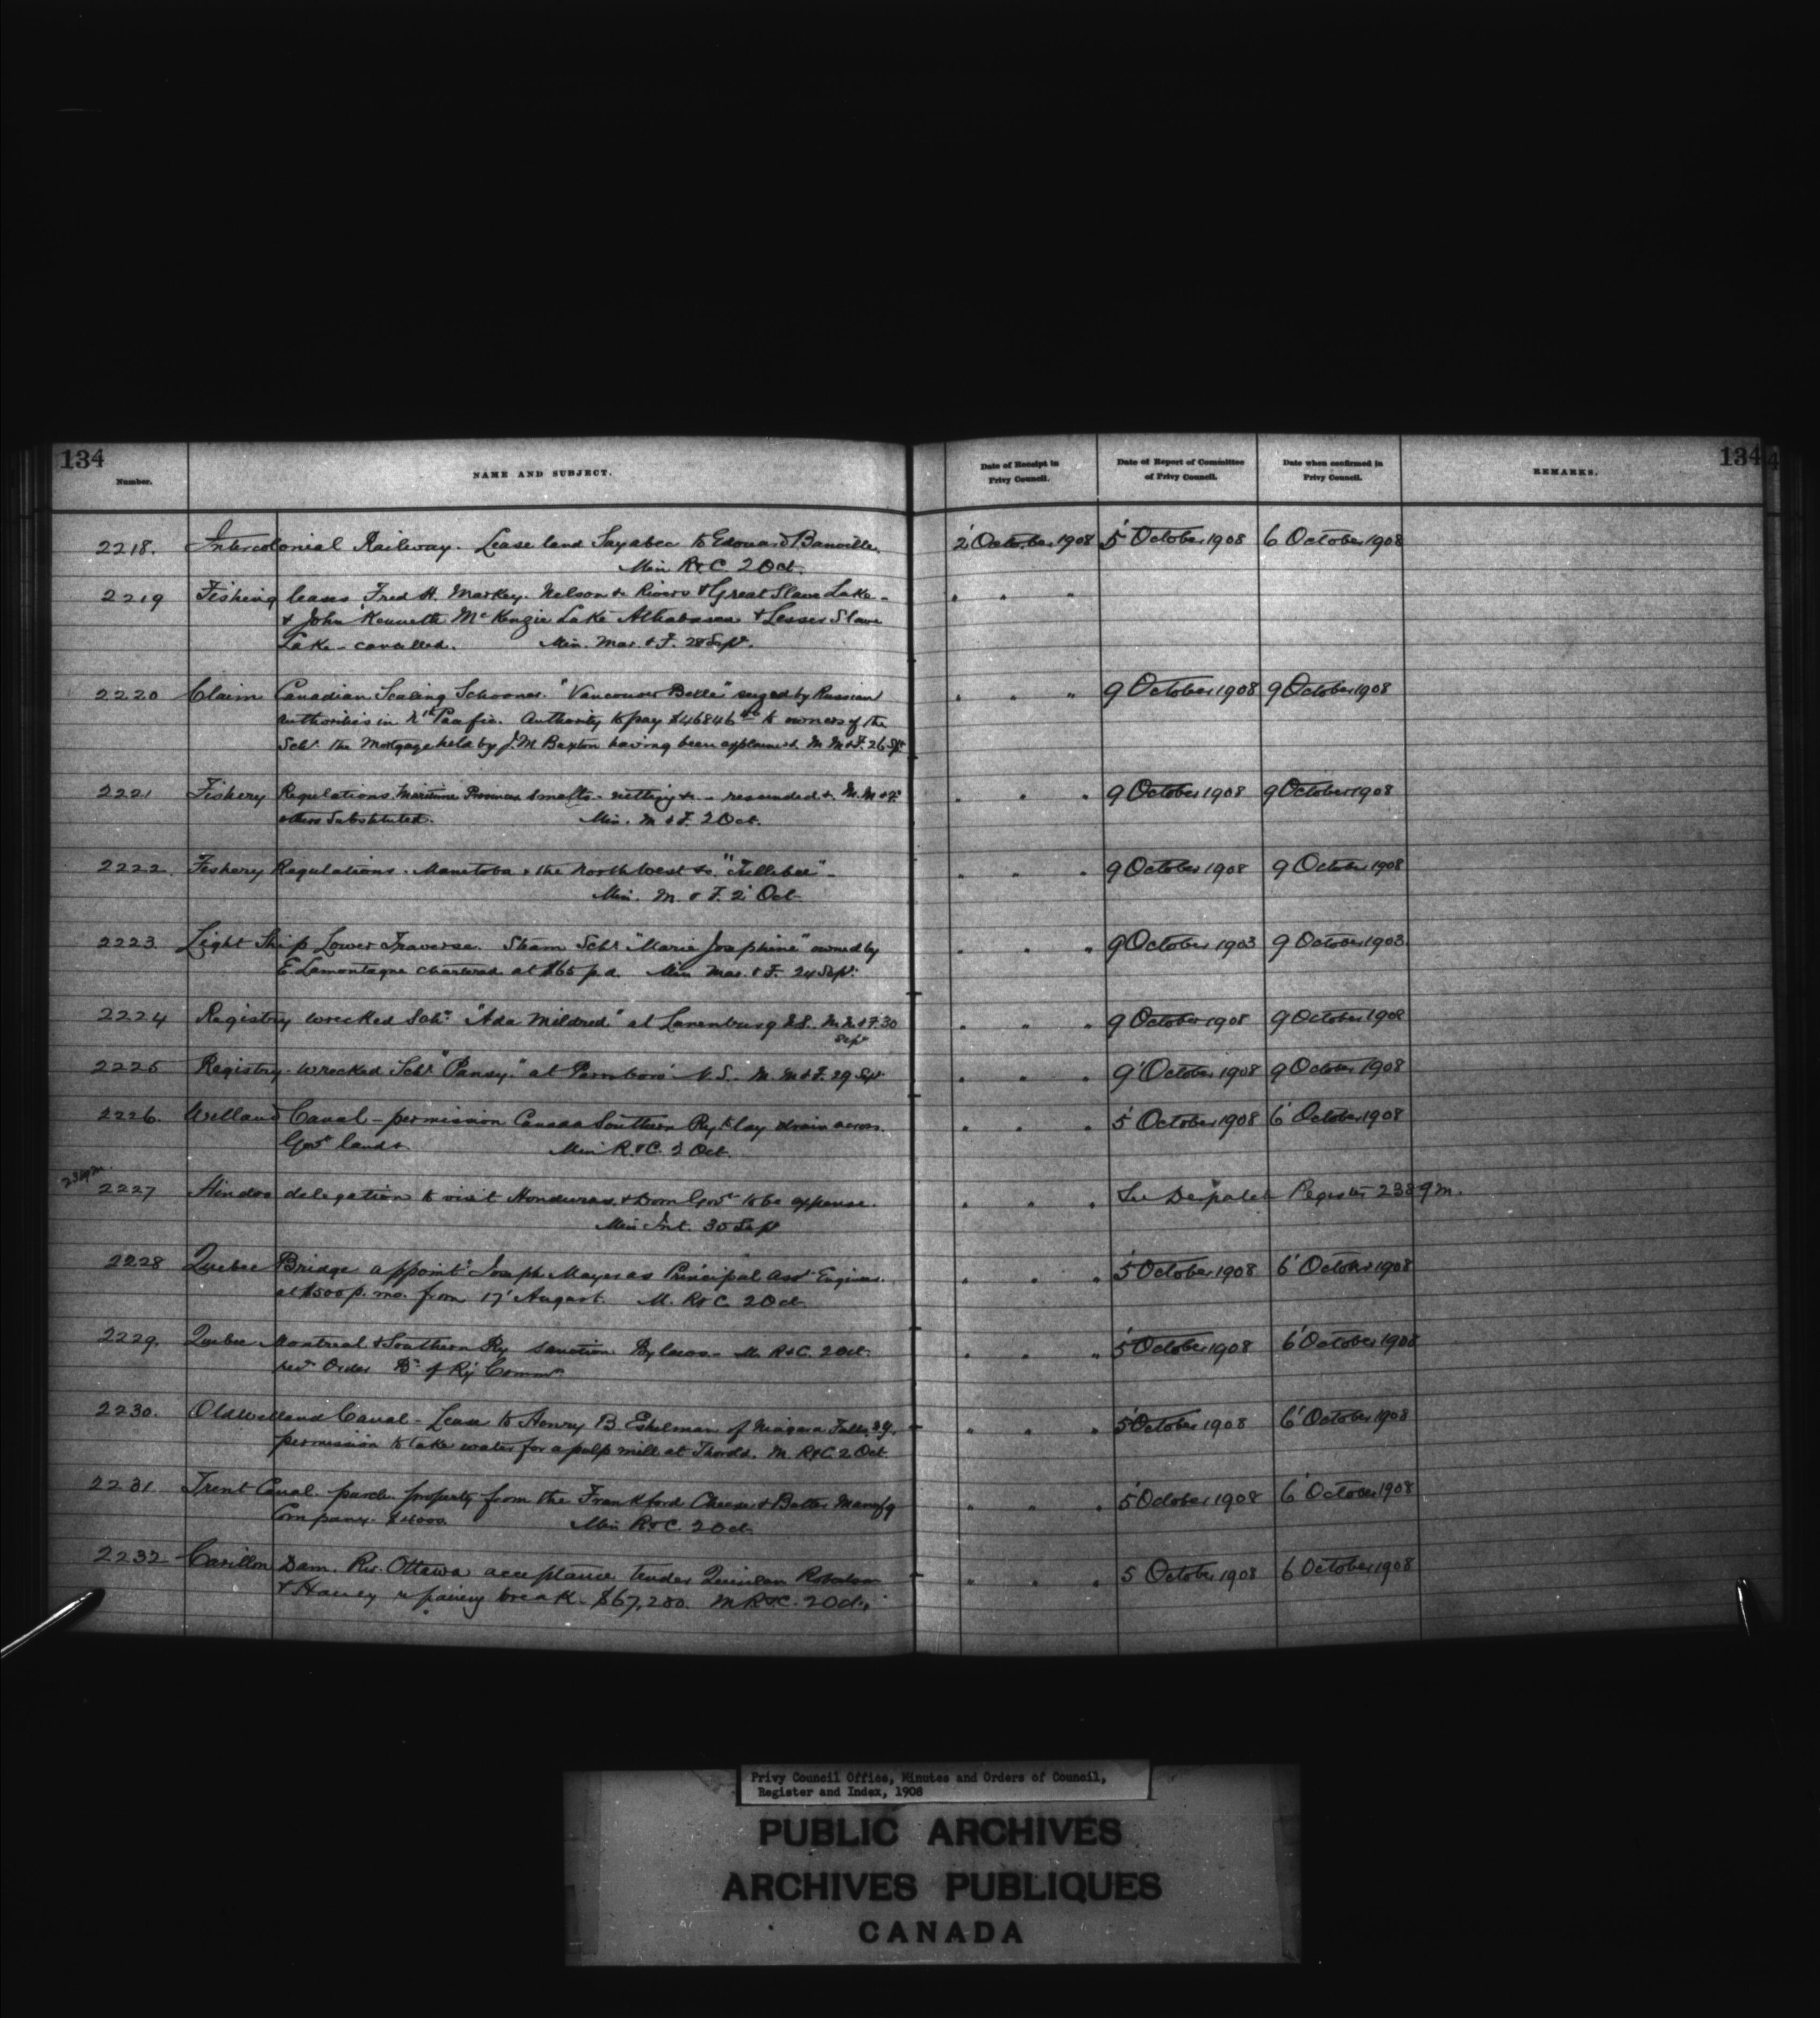 134
134
Number.
NAME AND SUBJECT.
Date of Receipt in Privy Council.
Date of Report of Committee of Privy Council.
Date when confirmed in Privy Council.
REMARKS.
2218. Intercolonial Railway. Lease land Sayabec to Edouard Banville. 2' October 1908 5' October 1908 6 October 1908
Min R&C. 2 Oct.
2219 Fishing leases Fred H. Markey. Nelson &c Rivers & Great Slave Lake - " " "
& John Kenneth McKenzie Lake Athabasca & Lesser Slave
Lake - cancelled. Min. Mar. & F. 28 Sept.
2220 Claim Canadian Sealing Schooner. "Vancouver Belle" seized by Russian " " " 9 October 1908 9 October 1908
Authorities in Nth Pacific. Authority to pay $46846 to owners of the
Schr. the Mortgage held by J.M Buxton having been explained. M. M & F. 26 Sept
2221 Fishery Regulations Maritime Provinces Smelts - netting &c - rescinded & M. M & F. " " " 9 October 1908 9 October 1908
others Substituted. Min. M & F. 2 Oct.
2222. Fishery Regulations. Manitoba & the North West &c "Tullibee" - " " " 9 October 1908 9 October 1908
Min. M. & F. 2' Oct
2223. Light Ship Lower Traverse. Steam Schr "Marie Josephine" owned by " " " 9 October 1903 9 October 1903
E Lamontagne chartered at $65 p.d. Min Mar. & F. 24 Sept.
2224 Registry wrecked Schr "Ada Mildred" at Lunenburg N.S. M. M & F. 30 " " " 9 October 1908 9 October 1908
Sept
2225 Registry. Wrecked Schr "Pansy." at Parrsboro' N.S. M. M & F. 29 Sept " " " 9' October 1908 9 October 1908
2226. Welland Canal - permission Canada Southern Ry to lay drain across " " " 5' October 1908 6' October 1908
Govt lands. Min R.&C. 2 Oct.
2389m.
2227 Hindoo delegation to visit Honduras & Dom Govt to be expense. " " " See Despatch Register 2389m.
Min Int. 30 Sept
2228 Quebec Bridge appointt Joseph Mayer as Principal Asst Engineer. " " " 5' October 1908 6' October 1908
at $500 p. mo. from 17' August. M. R&C. 2 Oct.
2229. Quebec Montreal & Southern Ry sanction Bylaws - M. R&C. 2 Oct. " " " 5' October 1908 6' October 1908
Order Bd of Ry Commrs
2230. Old Welland Canal - Lease to Henry B Eshelman of Niagara Falls, N.Y. " " " 5' October 1908 6' October 1908
permission to take water for a pulp mill at Thorold. M. R&C. 2 Oct
2231. Trent Canal. purch. property from the Frankford Cheese & Butter Manufg " " " 5' October 1908 6' October 1908
Company. $4000. Min R&C. 2 Oct.
2232 Carillon Dam. Riv. Ottawa acceptance tender Quinlan Robertson " " " 5 October 1908 6 October 1908
& Haney repairing break. $67,280. M R&C. 2 Oct.
Privy Council Office, Minutes and Orders of Council,
Register and Index, 1908
PUBLIC ARCHIVES
ARCHIVES PUBLIQUES
CANADA